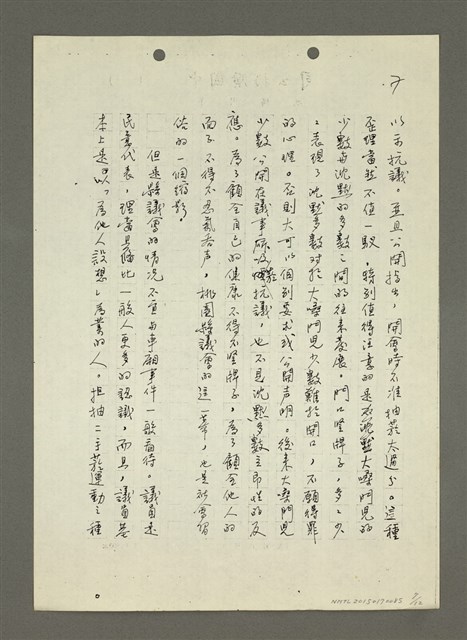 7
以示抗議。並且公開指出，開會時不准抽菸太過分。這種
歪理當然不值一駁，特別值得注意的是沈默大嗓門兒的
少數與沈默的多數之間的往來發展。門口豎牌子，多多少少
，表現了沈默多數對於大嗓門兒少數難於開口，不願得罪
的心理。否則大可以個別要求或公開声明。後來大嗓門兒
少數公開在議事廳吸菸抗議，也不見沈默多數立即性的反
應。為了顧全自己的健康不得不豎牌子，為了顧全他人的
面子不得不忍氣吞声，桃園縣議會的這一幕，也是社會習
俗的一個縮影。
但是縣議會的情況不宜與車廂事件一般看待。議員是
民意代表，理當具備比一般人更多的認識，而且，議員基
本上是以「為他人設想」為業的人。拒抽二手菸運動之種
NMTL20150170085
7/10